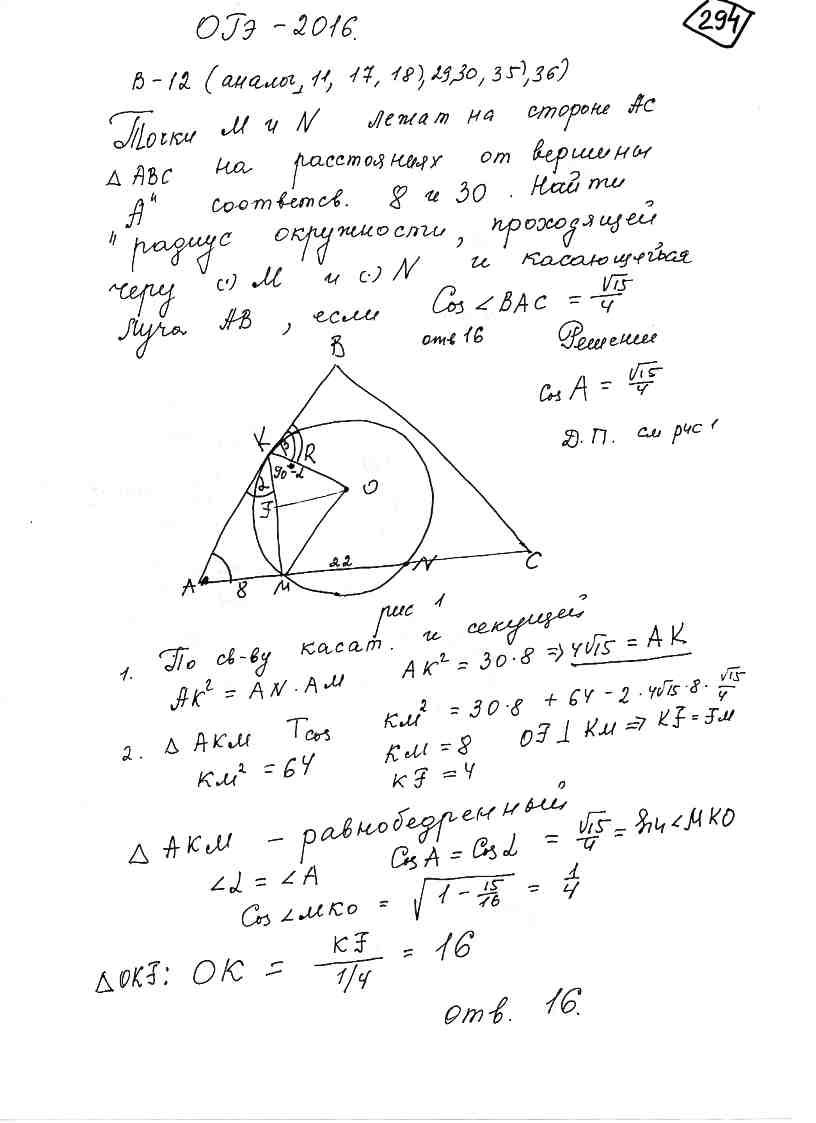 ОГЭ - 2016.
294
В-12 (аналог, 11, 17, 18), 29,30, 35), 36)
Точки М и N лежат на стороне АС
△ АВС на расстояниях от вершины
"А" соответсв. 8 и 30. Найти
радиус окружности, проходящей
через (·) М и (·) N и касающейся
луча АВ, если Cos ∠ВАС = √15/4
отв 16
Решение
cos A = √15/4
Д.П. см рис 1
В
К
R
90°-α
α
O
F
A
8
M
22
N
C
рис 1
1. По св-ву касат. и секущей
AK² = AN · AM AK² = 30·8 => 4√15 = AK
2. △ AKM Tcos KM² = 30·8 + 64 - 2·4√15·8·√15/4
KM² = 64 KM = 8 OF ⊥ KM => KF = FM
KF = 4
△ AKM - равнобедренный
∠α = ∠A CosA = Cosα = √15/4 = Sin∠MKO
Cos∠MKO = √(1 - 15/16) = 1/4
△OKF: OK = KF / 1/4 = 16
Отв. 16.